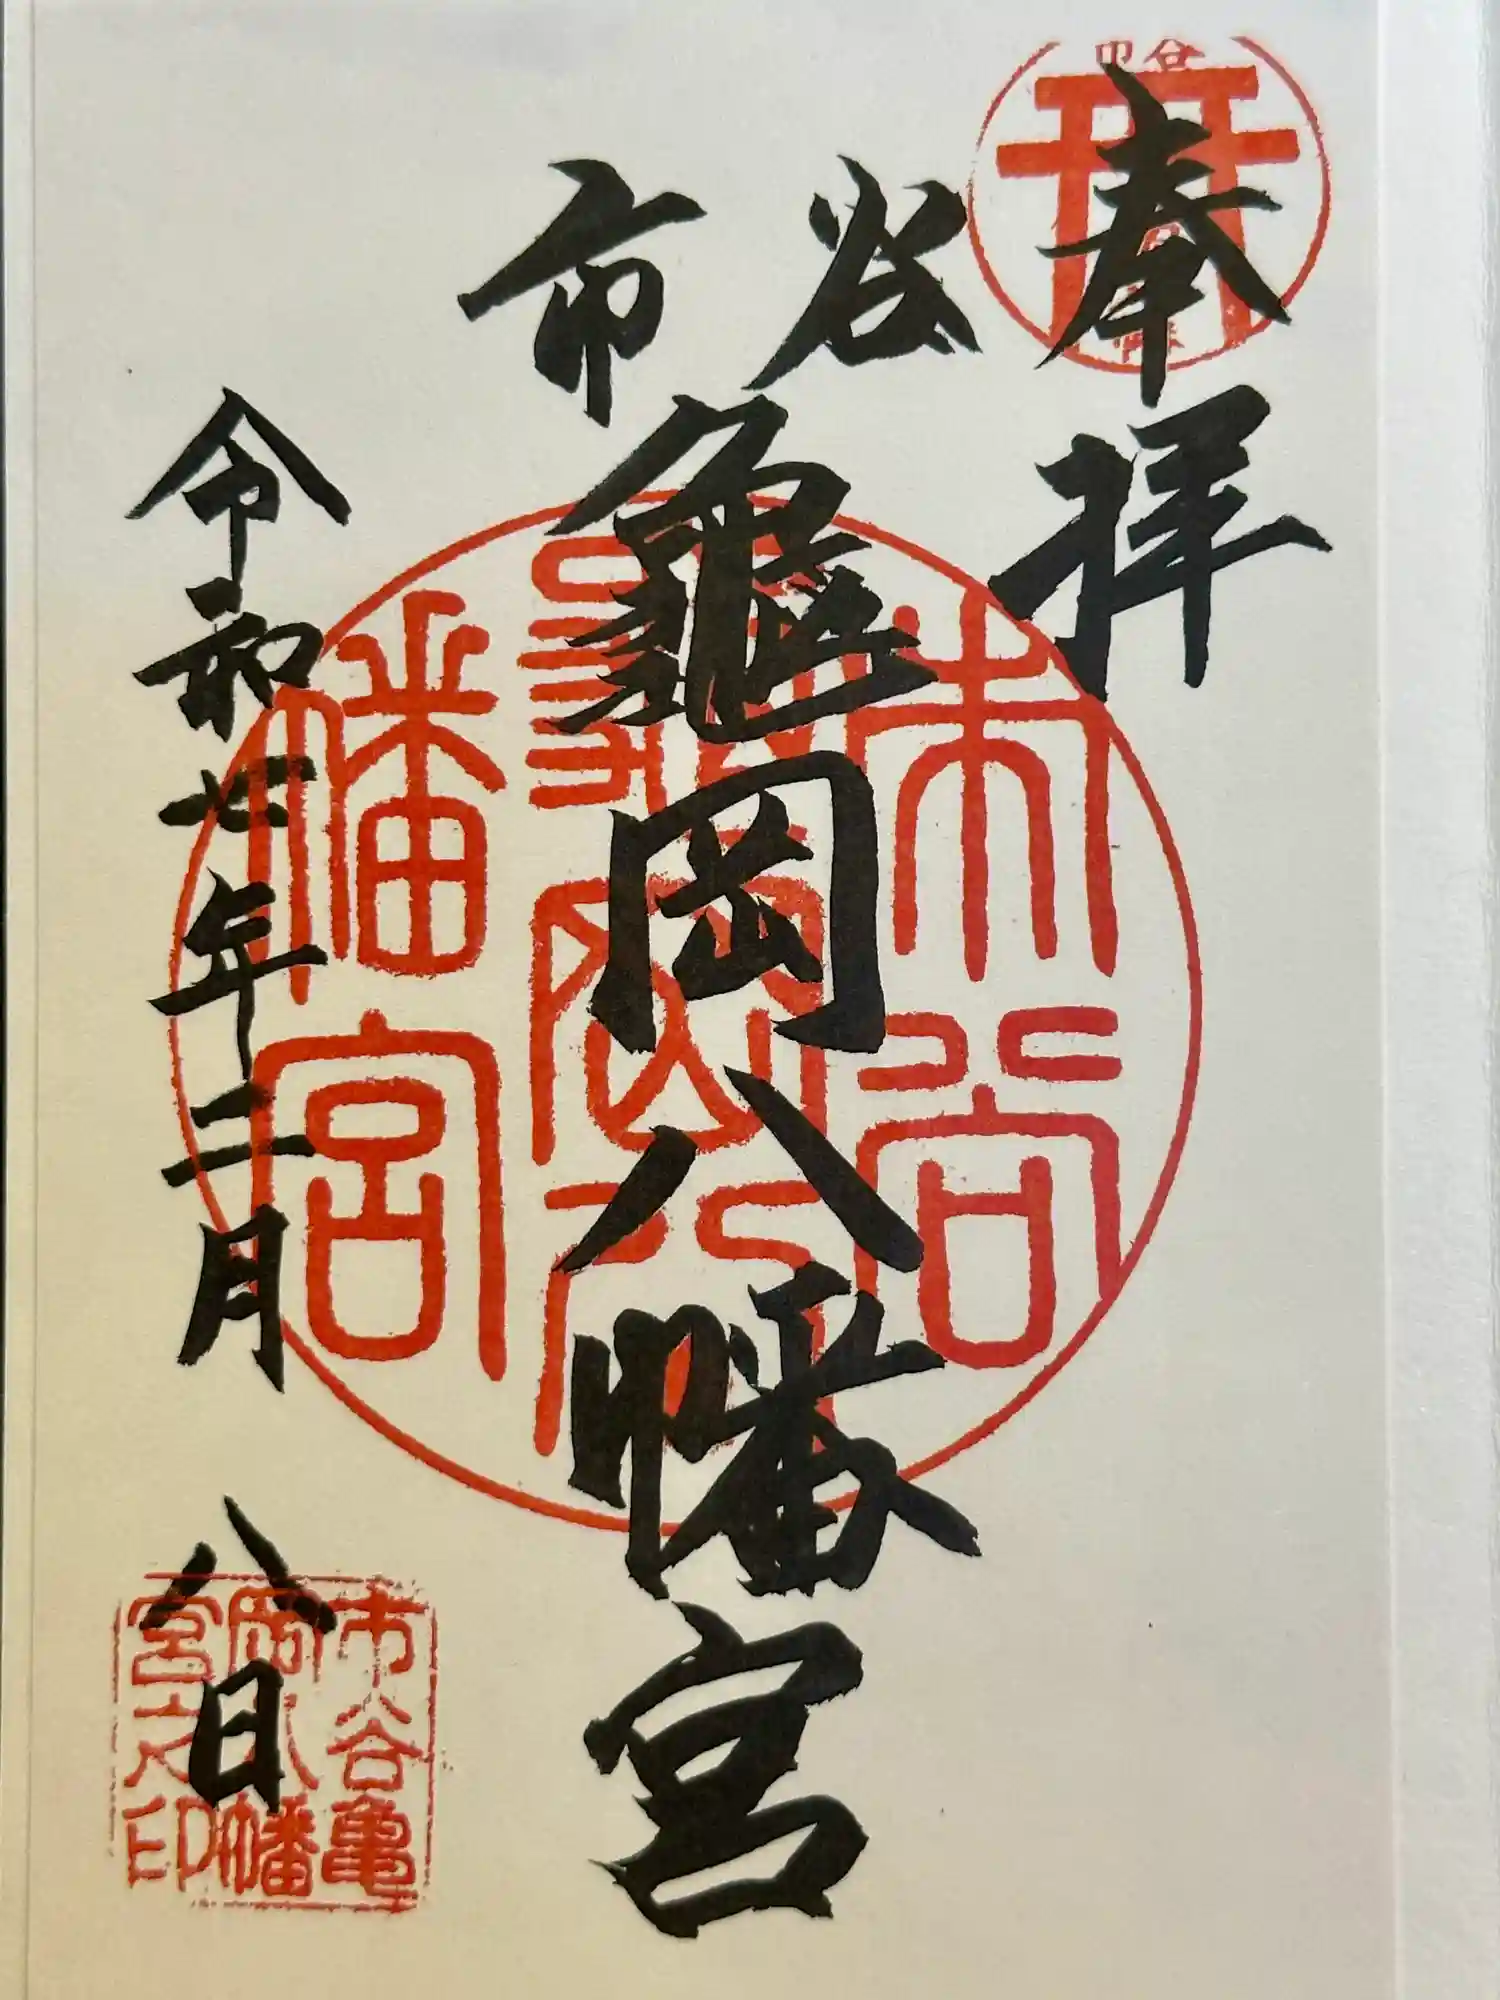 奉拝
市谷
龜岡八幡宮
令和七年二月八日
市谷
龜岡八
幡宮
市谷亀
岡八幡
宮之印